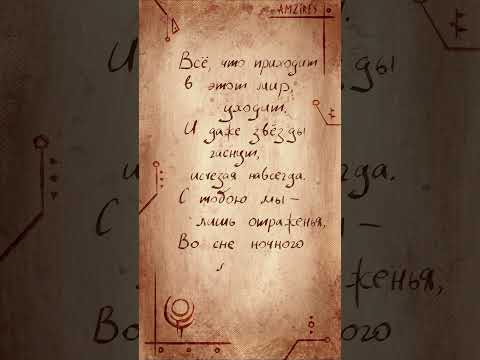 AMZIRES
Всё, что приходит
в этот мир,
уходит.
И даже звёзды
гаснут,
исчезая навсегда.
С тобою мы –
лишь отраженья,
Во сне ночного